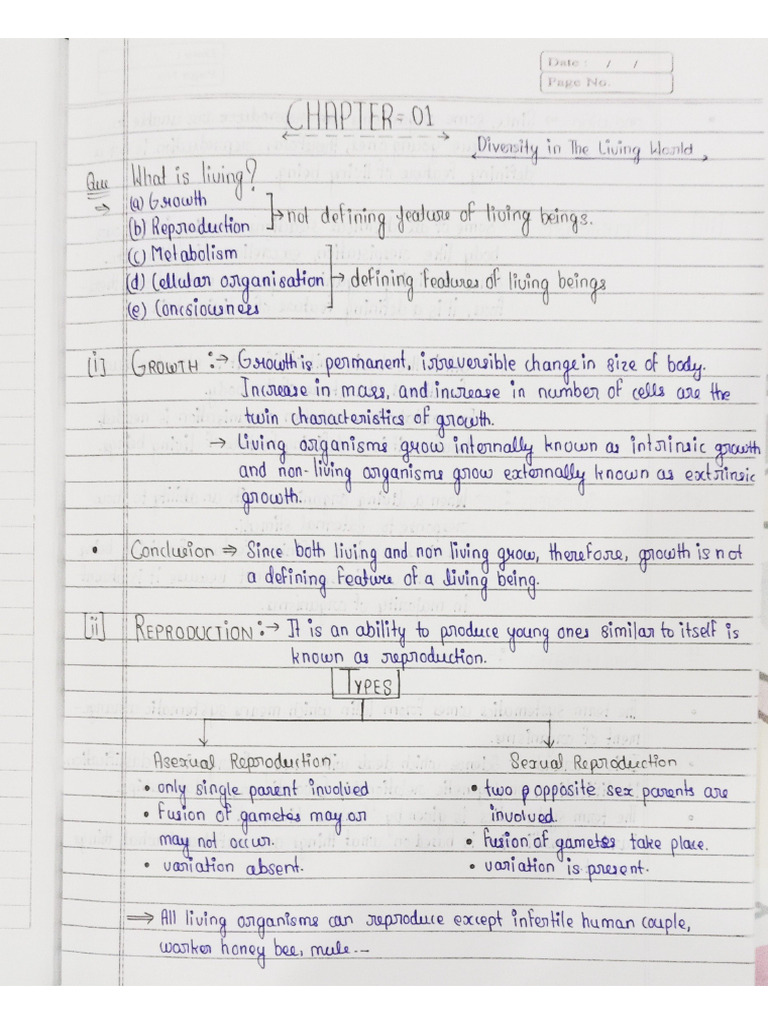 Date : / /
Page No.
CHAPTER = 01
Diversity in The Living World
Que What is living?
⇒ (a) Growth
(b) Reproduction → not defining feature of living beings.
(c) Metabolism
(d) Cellular organisation → defining features of living beings
(e) Concsiowness
[i] GROWTH :→ Growth is permanent, irreversible change in size of body.
Increase in mass, and increase in number of cells are the
twin characteristics of growth.
→ Living organisms grow internally known as intrinsic growth
and non-living organisms grow externally known as extrinsic
growth.
• Conclusion ⇒ Since both living and non living grow, therefore, growth is not
a defining feature of a living being.
[ii] REPRODUCTION :→ It is an ability to produce young ones similar to itself is
known as reproduction.
TYPES
Asexual Reproduction: Sexual Reproduction
• only single parent involved • two opposite sex parents are
• fusion of gametes may or involved.
may not occur. • fusion of gametes take place.
• variation absent. • variation is present.
⇒ All living organisms can reproduce except infertile human couple,
worker honey bee, mule --